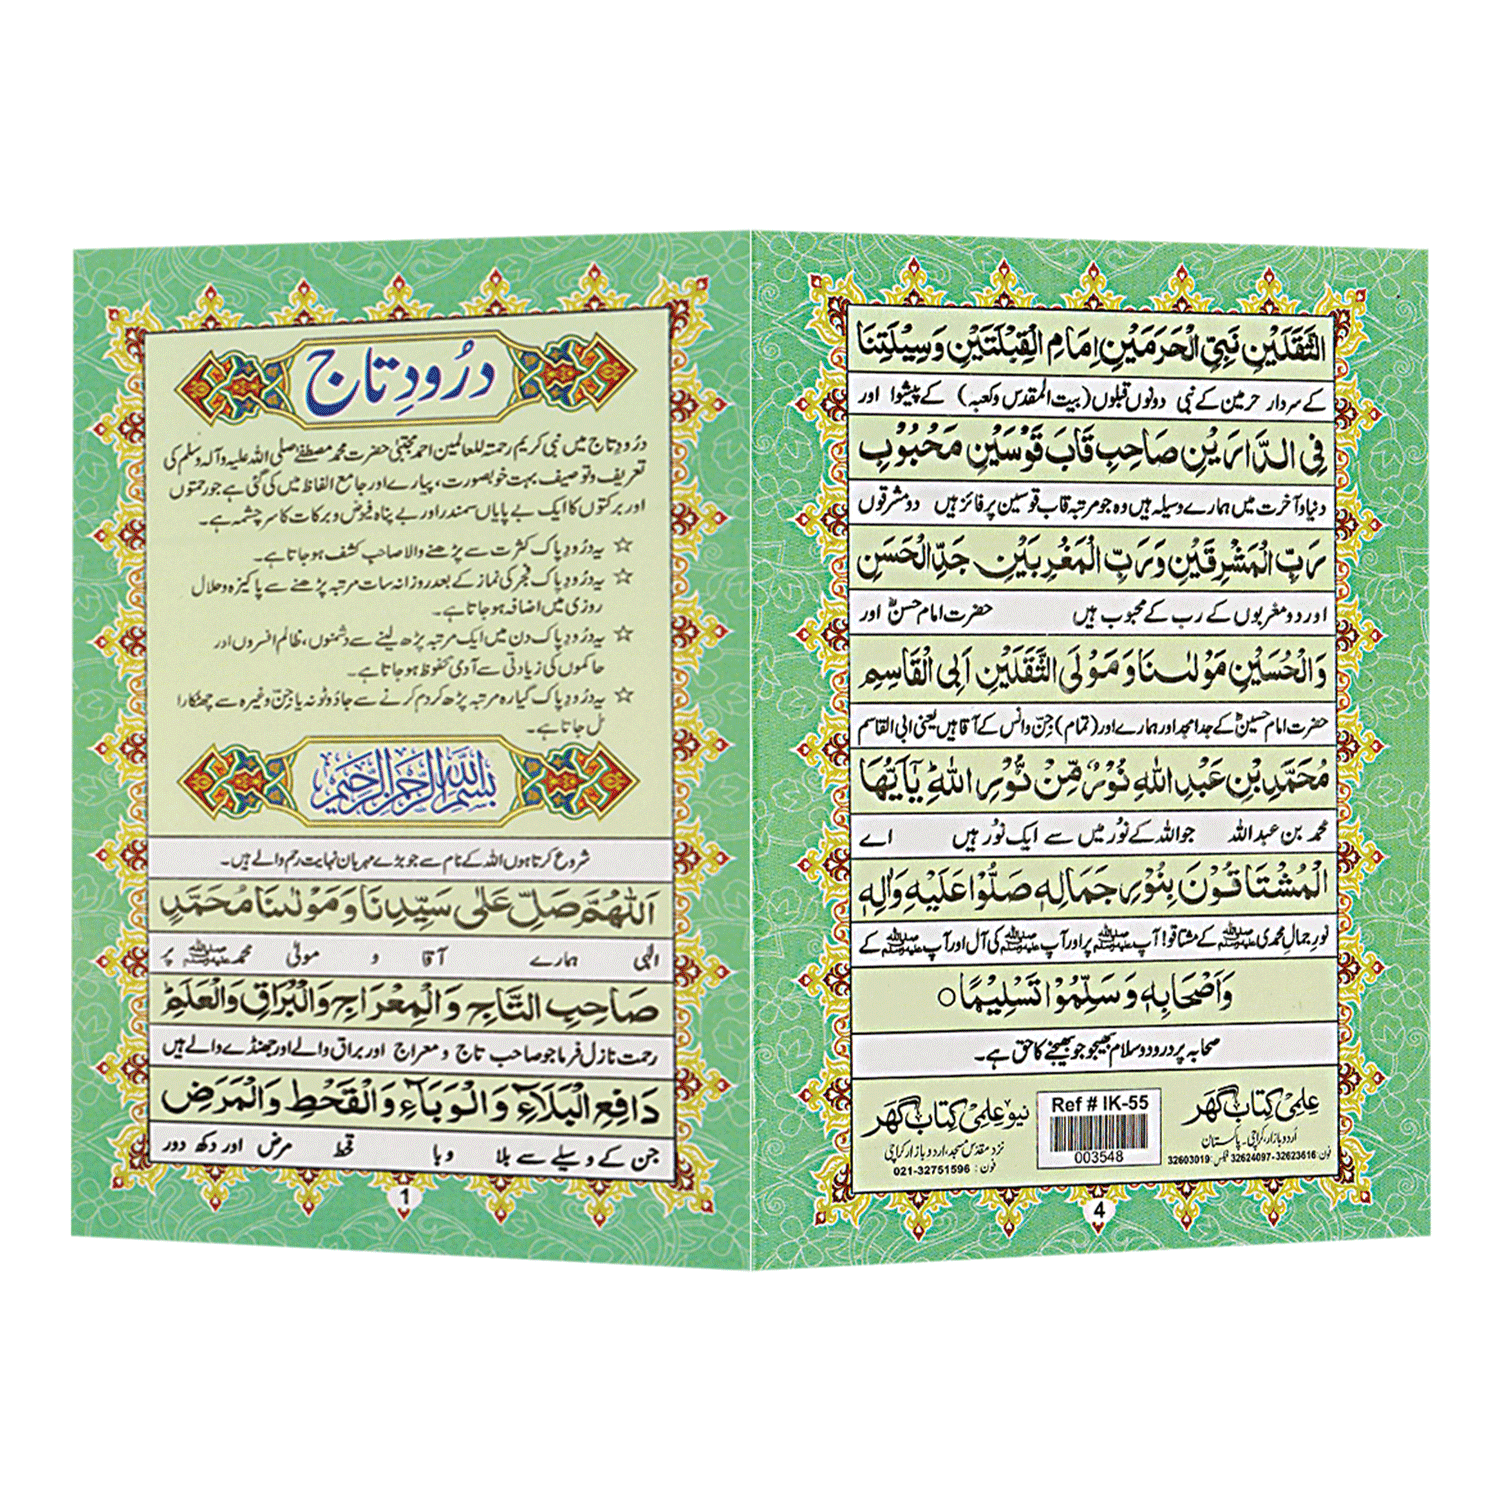 درُودِ تاج
درُودِ تاج میں نبی کریم رحمتہ للعالمین احمد مجتبیٰ حضرت محمد مصطفےٰ صلی اللہ علیہ وآلہ وسلم کی
تعریف و توصیف بہت خوبصورت، پیارے اور جامع الفاظ میں کی گئی ہے جو رحمتوں
اور برکتوں کا ایک بے پایاں سمندر اور بے پناہ فیوض و برکات کا سرچشمہ ہے۔
☆ یہ درُود پاک کثرت سے پڑھنے والا صاحب کشف ہوجاتا ہے۔
☆ یہ درُودِ پاک فجر کی نماز کے بعد روزانہ سات مرتبہ پڑھنے سے پاکیزہ و حلال
روزی میں اضافہ ہوجاتا ہے۔
☆ یہ درُودِ پاک دن میں ایک مرتبہ پڑھ لینے سے دشمنوں، ظالم افسروں اور
حاکموں کی زیادتی سے آدمی محفوظ ہوجاتا ہے۔
☆ یہ درُودِ پاک گیارہ مرتبہ پڑھ کر دم کرنے سے جادُو ٹونہ یا جِنّ وغیرہ سے چھٹکارا
مل جاتا ہے۔
بِسْمِ اللهِ الرَّحْمٰنِ الرَّحِيْمِ
شروع کرتا ہوں اللہ کے نام سے جو بڑے مہربان نہایت رحم والے ہیں۔
اَللّٰهُمَّ صَلِّ عَلٰى سَيِّدِنَا وَمَوْلٰىنَا مُحَمَّدٍ
الٰہی ہمارے آقا و مولیٰ محمد ﷺ پر
صَاحِبِ التَّاجِ وَالْمِعْرَاجِ وَالْبُرَاقِ وَالْعَلَمِ ؕ
رحمت نازل فرما جو صاحب تاج و معراج اور براق والے اور جھنڈے والے ہیں
دَافِعِ الْبَلَاءِ وَالْوَبَاءِ وَالْقَحْطِ وَالْمَرَضِ
جن کے وسیلے سے بلا وبا قحط مرض اور دکھ دور
1
الثَّقَلَيْنِ نَبِيِّ الْحَرَمَيْنِ اِمَامِ الْقِبْلَتَيْنِ وَسِيْلَتِنَا
کے سردار حرمین کے نبی دونوں قبلوں (بیت المقدس و کعبہ) کے پیشوا اور
فِي الدَّارَيْنِ صَاحِبِ قَابَ قَوْسَيْنِ مَحْبُوْبِ
دنیا و آخرت میں ہمارے وسیلہ ہیں وہ جو مرتبہ قاب قوسین پر فائز ہیں دو مشرقوں
رَبِّ الْمَشْرِقَيْنِ وَرَبِّ الْمَغْرِبَيْنِ جَدِّ الْحَسَنِ
اور دو مغربوں کے رب کے محبوب ہیں حضرت امام حسنؓ اور
وَالْحُسَيْنِ مَوْلٰىنَا وَمَوْلَى الثَّقَلَيْنِ اَبِي الْقَاسِمِ
حضرت امام حسینؓ کے جد امجد اور ہمارے اور (تمام) جِنّ و انس کے آقا ہیں یعنی ابی القاسم
مُحَمَّدِ بْنِ عَبْدِ اللهِ نُوْرٍ مِّنْ نُّوْرِ اللهِ ؕ يٰۤاَيُّهَا
محمد بن عبداللہ جو اللہ کے نُور میں سے ایک نُور ہیں اے
الْمُشْتَاقُوْنَ بِنُوْرِ جَمَالِهٖ صَلُّوْا عَلَيْهِ وَاٰلِهٖ
نورِ جمالِ محمدی ﷺ کے مشتاقو! آپ ﷺ پر اور آپ ﷺ کی آل اور آپ ﷺ کے
وَاَصْحَابِهٖ وَسَلِّمُوْا تَسْلِيْمًا ○
صحابہ پر درود و سلام بھیجو جو بھیجنے کا حق ہے۔
علمی کتاب گھر
اُردو بازار، کراچی۔ پاکستان
فون: 32623616-32624097 فیکس: 32603019
Ref # IK-55
003548
نیو علمی کتاب گھر
نزد مقدس مسجد، اردو بازار کراچی
فون: 021-32751596
4